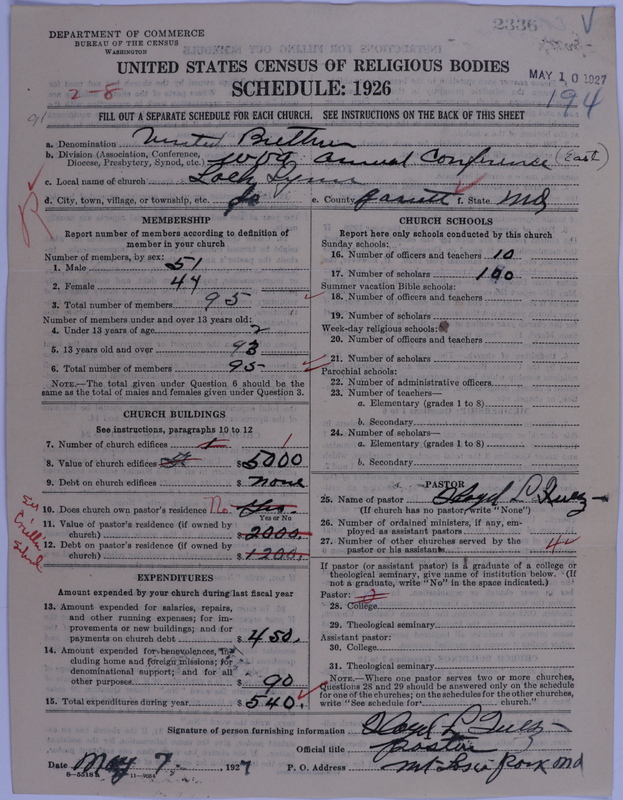 2336
V
DEPARTMENT OF COMMERCE
BUREAU OF THE CENSUS
WASHINGTON
UNITED STATES CENSUS OF RELIGIOUS BODIES
MAY 10 1927
SCHEDULE: 1926
2-8
194
FILL OUT A SEPARATE SCHEDULE FOR EACH CHURCH. SEE INSTRUCTIONS ON THE BACK OF THIS SHEET
91
a. Denomination United Brethren
b. Division (Association, Conference, Diocese, Presbytery, Synod, etc.) W. Va. Annual Conference (East)
c. Local name of church Loch Lynn
d. City, town, village, or township, etc. do e. County Garrett f. State Md
MEMBERSHIP
Report number of members according to definition of member in your church
Number of members, by sex:
1. Male 51
2. Female 44
3. Total number of members 95
Number of members under and over 13 years old:
4. Under 13 years of age 2
5. 13 years old and over 93
6. Total number of members 95
NOTE.—The total given under Question 6 should be the same as the total of males and females given under Question 3.
CHURCH BUILDINGS
See instructions, paragraphs 10 to 12
7. Number of church edifices 1
8. Value of church edifices $ 5000
9. Debt on church edifices $ none
10. Does church own pastor's residence No. Yes
Yes or No
11. Value of pastor's residence (if owned by church) $ 2000.
12. Debt on pastor's residence (if owned by church) $ 1200.
EXPENDITURES
Amount expended by your church during last fiscal year
13. Amount expended for salaries, repairs, and other running expenses; for improvements or new buildings; and for payments on church debt $ 450.
14. Amount expended for benevolences, including home and foreign missions; for denominational support; and for all other purposes $ 90
15. Total expenditures during year $ 540.
CHURCH SCHOOLS
Report here only schools conducted by this church
Sunday schools:
16. Number of officers and teachers 10
17. Number of scholars 100
Summer vacation Bible schools:
18. Number of officers and teachers
19. Number of scholars
Week-day religious schools:
20. Number of officers and teachers
21. Number of scholars
Parochial schools:
22. Number of administrative officers
23. Number of teachers—
a. Elementary (grades 1 to 8)
b. Secondary
24. Number of scholars—
a. Elementary (grades 1 to 8)
b. Secondary
PASTOR
25. Name of pastor Floyd L.
(If church has no pastor, write "None")
26. Number of ordained ministers, if any, employed as assistant pastors
27. Number of other churches served by the pastor or his assistants 4
If pastor (or assistant pastor) is a graduate of a college or theological seminary, give name of institution below. (If not a graduate, write "No" in the space indicated.)
Pastor:
28. College
29. Theological seminary
Assistant pastor:
30. College
31. Theological seminary
NOTE.—Where one pastor serves two or more churches, Questions 28 and 29 should be answered only on the schedule for one of the churches; on the schedules for the other churches, write "See schedule for church."
Signature of person furnishing information Floyd L.
Official title Pastor
Date May 7 1927 P. O. Address Md
8—5518 11—9084